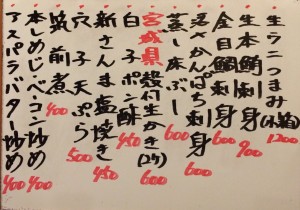 生うにつまみ(小箱)1200
生本鮪刺身 900
金目鯛刺身 600
活さかんぱち刺身 600
蒸し床ぶし 600
宮城県殻付生かき(2ケ) 600
白子ポン酢 450
新さんま塩焼き 450
穴子天ぷら 500
筑前煮 400
本しめじ・ベーコン炒め 400
アスパラバター炒め 400